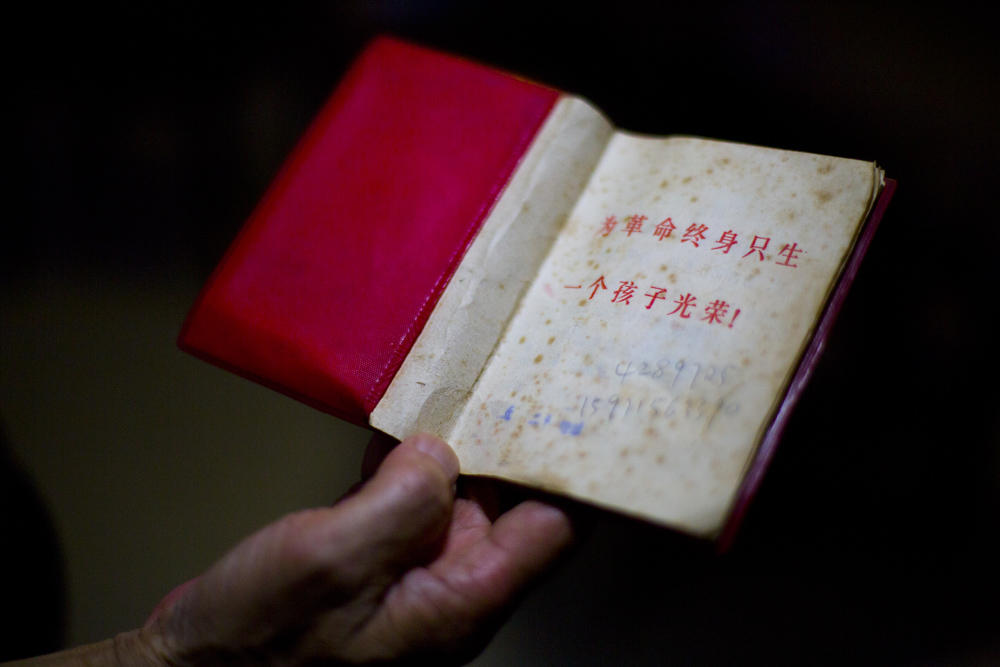 为革命终身只生
一个孩子光荣!
4289725